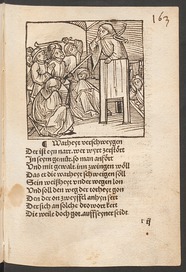 163
¶ Warheyt verschweygen
Der ist eyn narr, wer wyrt zerstört
In seym gemüt, so man anfört
Und mit gewalt inn zwingen wöll
Das er die warheyt schweigen söll
Sein weißheyt underwegen lon
Und soll den weg der torheyt gon
Den der on zweyffel anhyn fert
Der sich an solche dro wort kert
Die weile doch got auff seyner seidt
r ij